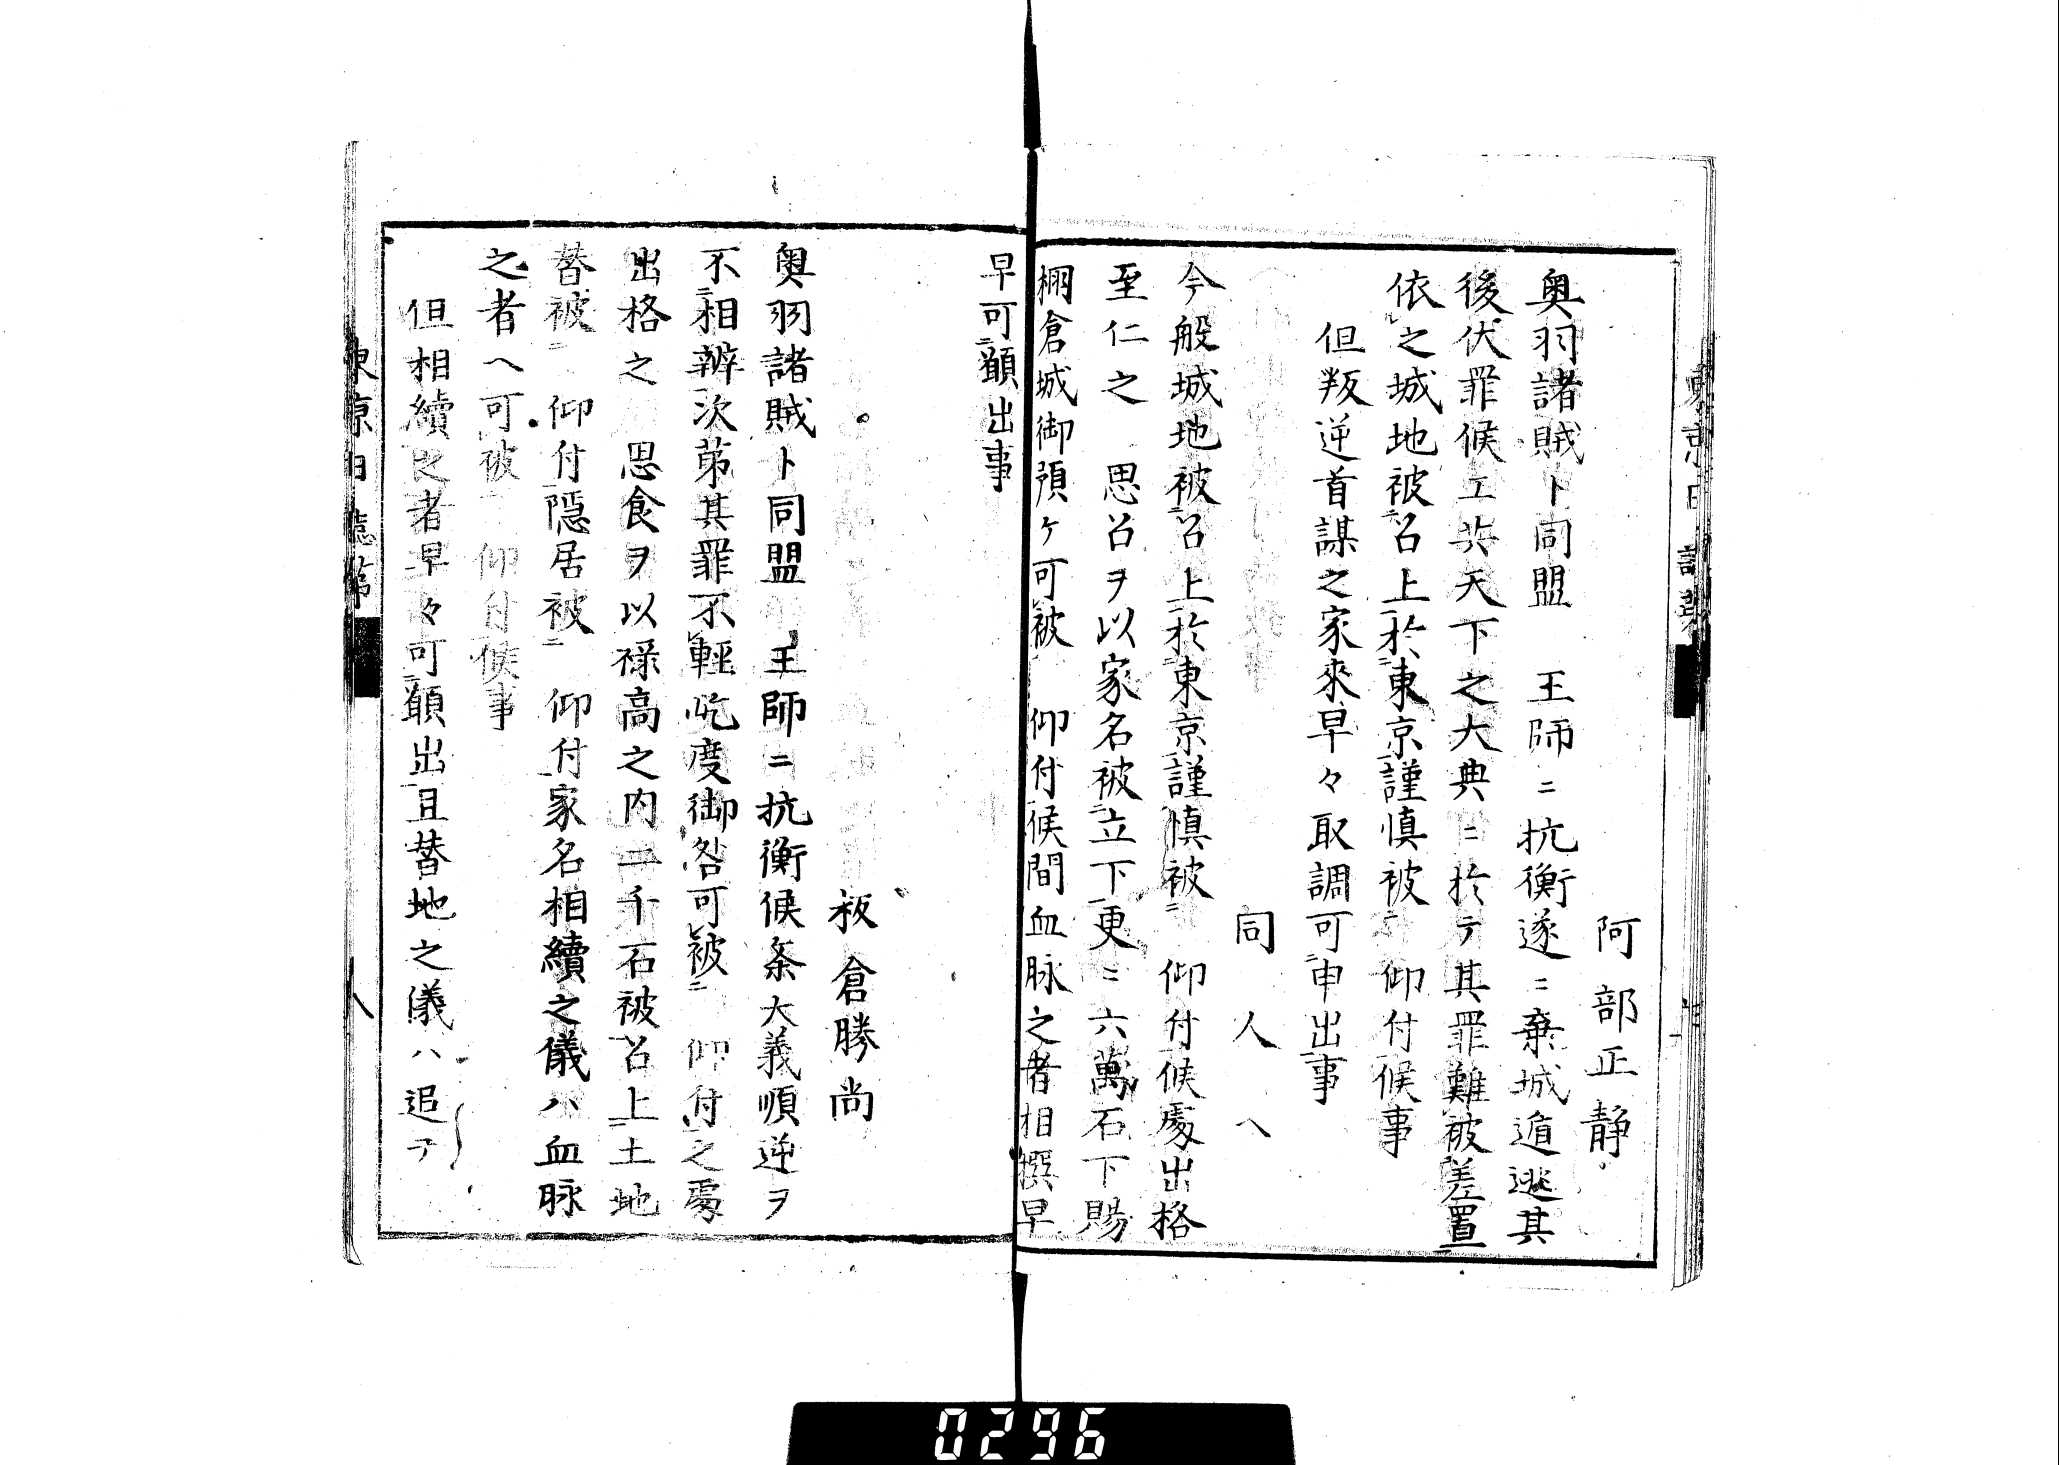 阿部正静
奥羽諸賊ト同盟　王師ニ抗衡遂ニ棄城遁逃其
後伏罪候エ共天下之大典ニ於テ其罪難被差置
依之城地被召上於東京謹慎被　仰付候事
但叛逆首謀之家來早々取調可申出事
同人へ
今般城地被召上於東京謹慎被　仰付候處出格
至仁之　思召ヲ以家名被立下更ニ六萬石下賜
棚倉城御預ケ可被　仰付候間血脉之者相撰早
早可願出事
板倉勝尚
奥羽諸賊ト同盟　王師ニ抗衡候条大義順逆ヲ
不相辨次第其罪不輕屹度御咎可被　仰付之處
出格之　思食ヲ以禄高之内二千石被召上土地
替被　仰付隠居被　仰付家名相續之儀ハ血脉
之者へ可被　仰付候事
但相續之者早々可願出且替地之儀ハ追テ
東京日
0296